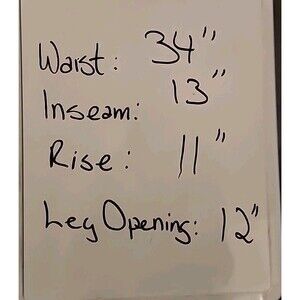 Waist: 34"
Inseam: 13"
Rise: 11"
Leg Opening: 12"